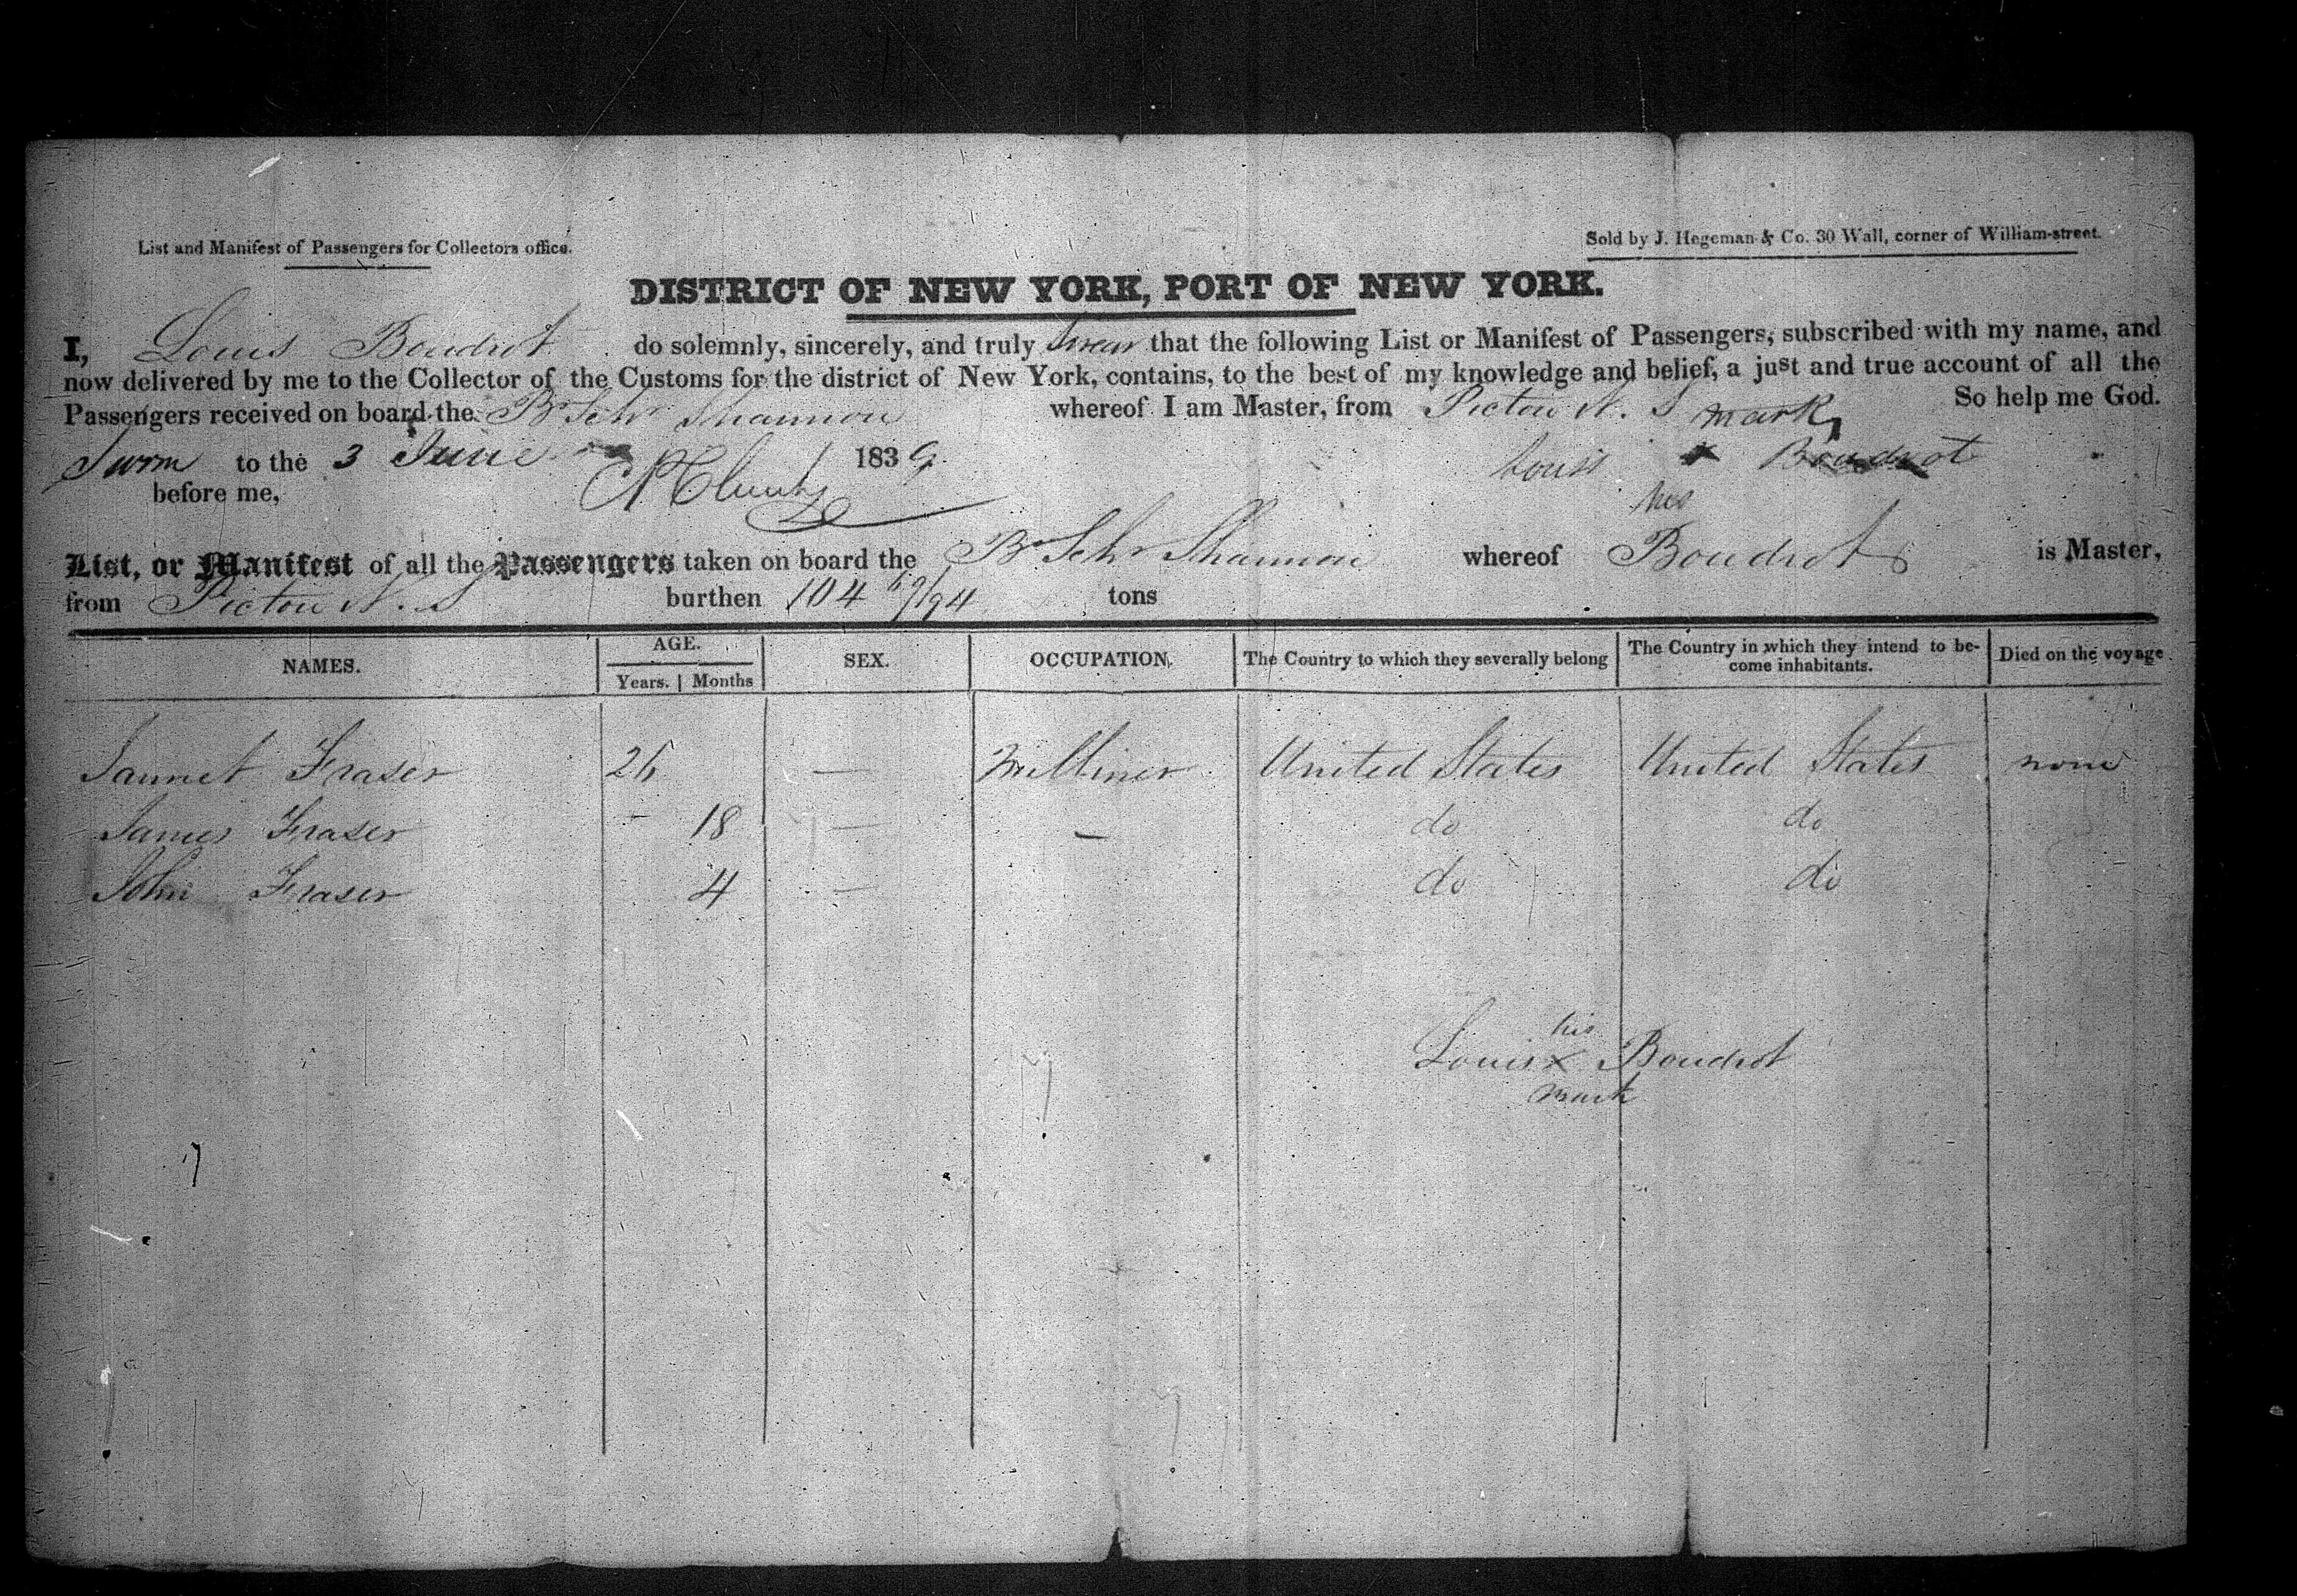 List and Manifest of Passengers for Collectors office.
Sold by J. Hegeman & Co. 30 Wall, corner of William-street.
DISTRICT OF NEW YORK, PORT OF NEW YORK.
I, Louis Boudrot do solemnly, sincerely, and truly swear that the following List or Manifest of Passengers, subscribed with my name, and
now delivered by me to the Collector of the Customs for the district of New York, contains, to the best of my knowledge and belief, a just and true account of all the
Passengers received on board the Br Schr Shannon whereof I am Master, from Pictou N. S So help me God.
mark
Sworn to the 3 June 1839 Louis x Boudrot
before me,
his
List, or Manifest of all the Passengers taken on board the Br Schr Shannon whereof Boudrot is Master,
from Pictou N. S burthen 104 tons
NAMES. AGE. SEX. OCCUPATION. The Country to which they severally belong The Country in which they intend to be-come inhabitants. Died on the voyage
Years. Months
Jannet Fraser 26 — Milliner United States United States none
James Fraser - 18 — — do do
John Fraser 4 — do do
his
Louis x Boudrot
mark